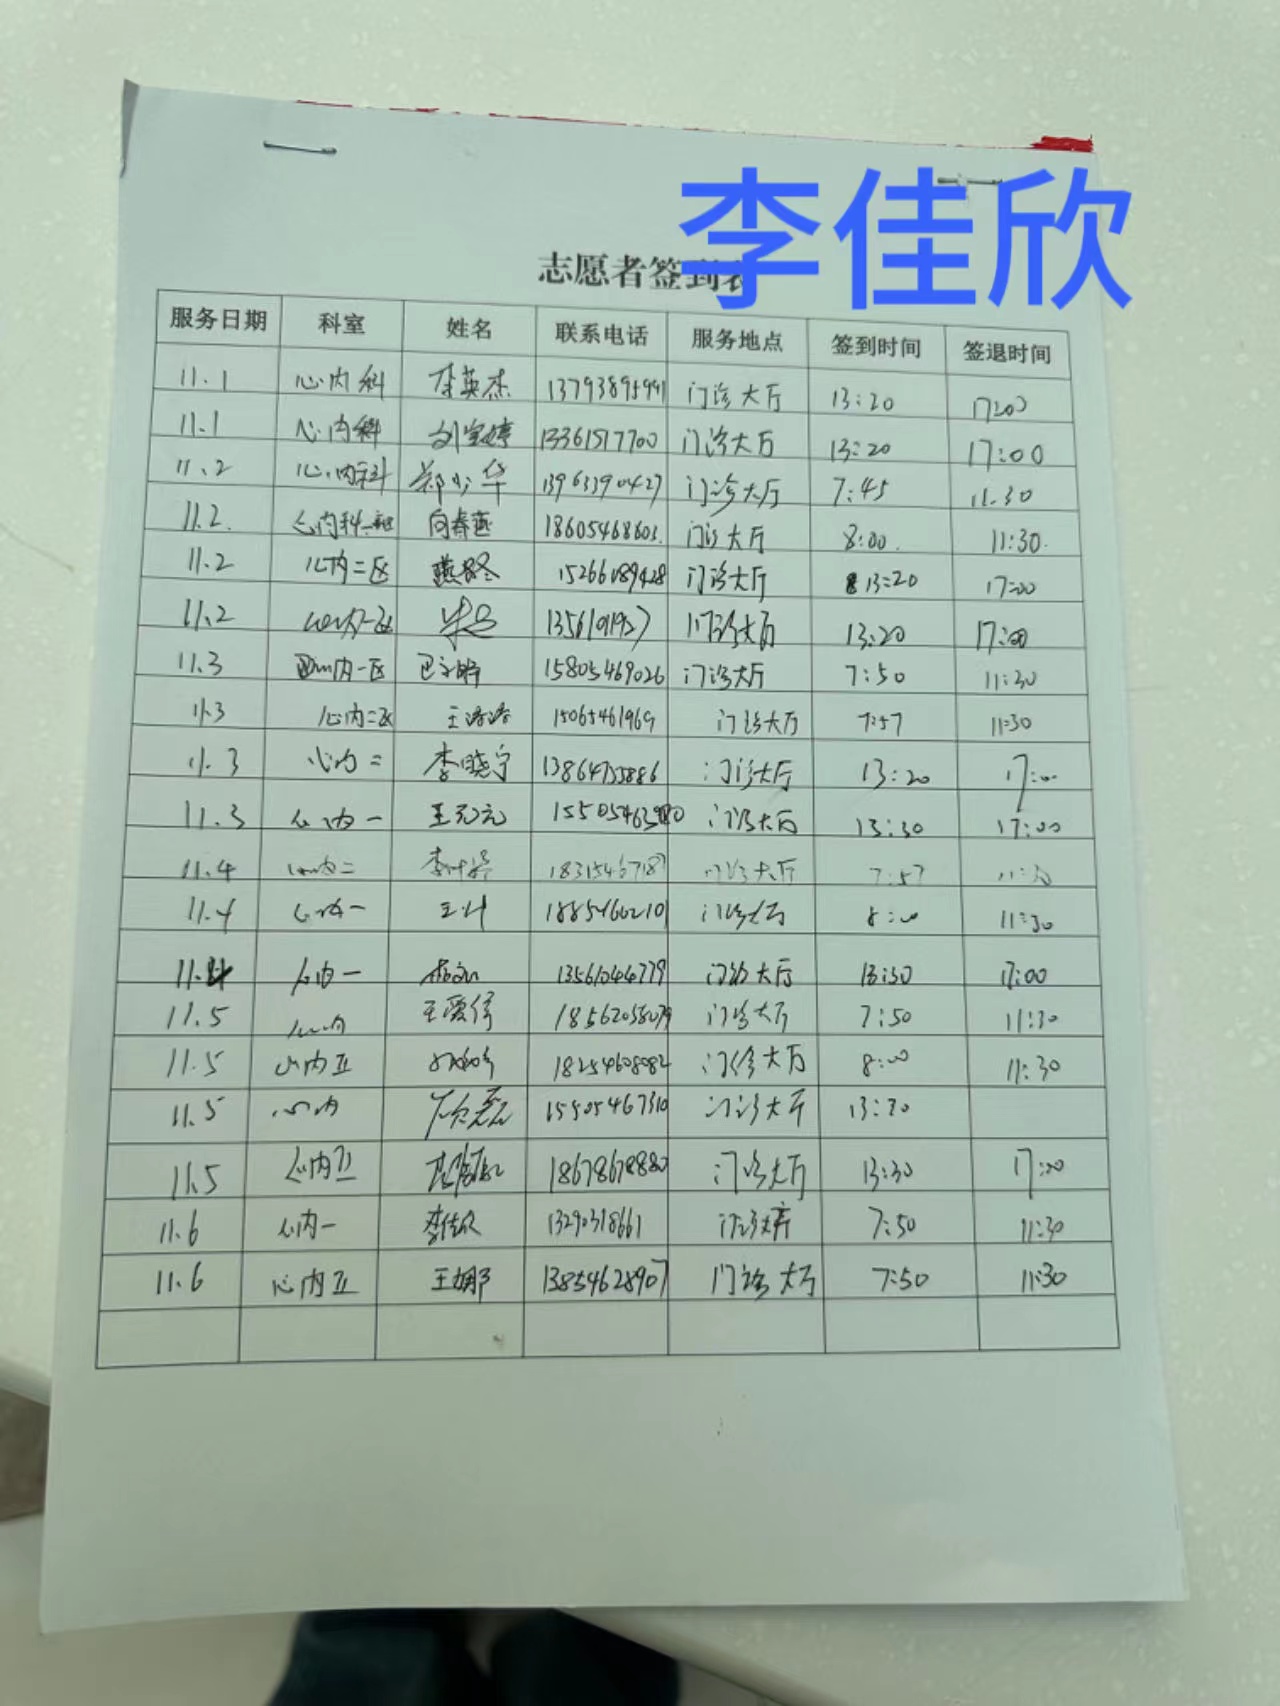 李佳欣
志愿者签到表
服务日期 科室 姓名 联系电话 服务地点 签到时间 签退时间
11.1 心内科 李英杰 13793895941 门诊大厅 13:20 17:00
11.1 心内科 刘宝婷 13361517700 门诊大厅 13:20 17:00
11.2 心内科 郑少华 13963390427 门诊大厅 7:45 11.30
11.2. 心内科 向春燕 门诊大厅 8:00. 11:30.
11.2 心内二区 15266089428 门诊大厅 13:20 17:00
11.2 门诊大厅 13:20 17:00
11.3 心内一区 15805469026 门诊大厅 7:50 11:30
11.3 心内二区 王潞潞 15065461969 门诊大厅 7:57 11:30
11.3 心内二 李晓宁 门诊大厅 13:20 17:00
11.3 心内一 王元元 门诊大厅 13:30 17:00
11.4 心内二 18315467187 门诊大厅 7:57 11:30
11.4 心内一 18854660210 门诊大厅 8:00 11:30
11.4 心内一 13561044779 门诊大厅 13:30 17:00
11.5 心内 王爱伟 门诊大厅 7:50 11:30
11.5 心内五 18254608082 门诊大厅 8:00 11:30
11.5 心内 15505467310 门诊大厅 13:30
11.5 心内五 18678678880 门诊大厅 13:30 17:00
11.6 心内一 李佳欣 13290318661 门诊大厅 7:50 11:30
11.6 心内五 王娜 13854628907 门诊大厅 7:50 11:30